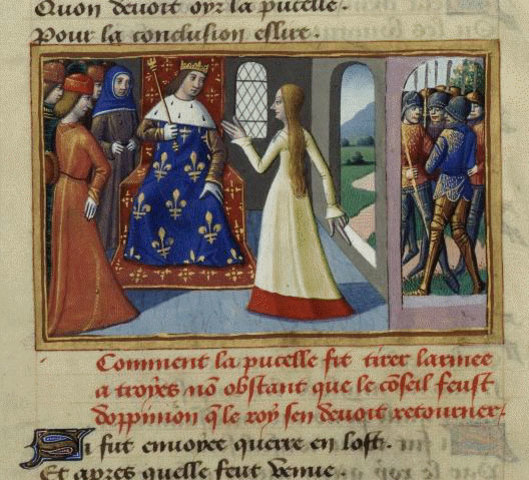 Quon devoit oyr la pucelle.
Pour la conclusion eslire.
Comment la pucelle fit tirer larmee
a troyes nō obstant que le cōseil feust
doppinion q̄ le roy sen devoit retourner
Si fut envoyee querre en lost.
Et apres quelle feut venue